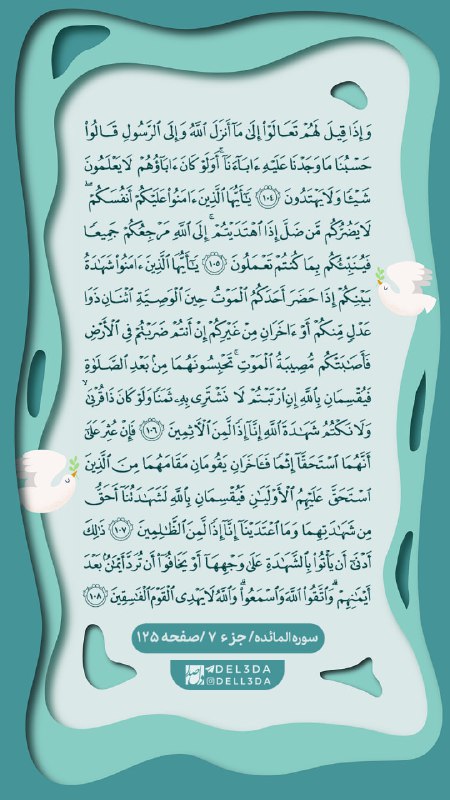 وَإِذَا قِيلَ لَهُمْ تَعَالَوْا۟ إِلَىٰ مَآ أَنزَلَ ٱللَّهُ وَإِلَى ٱلرَّسُولِ قَالُوا۟
حَسْبُنَا مَا وَجَدْنَا عَلَيْهِ ءَابَآءَنَآ ۚ أَوَلَوْ كَانَ ءَابَآؤُهُمْ لَا يَعْلَمُونَ
شَيْـًٔا وَلَا يَهْتَدُونَ ١٠٤ يَـٰٓأَيُّهَا ٱلَّذِينَ ءَامَنُوا۟ عَلَيْكُمْ أَنفُسَكُمْ ۖ
لَا يَضُرُّكُم مَّن ضَلَّ إِذَا ٱهْتَدَيْتُمْ ۚ إِلَى ٱللَّهِ مَرْجِعُكُمْ جَمِيعًا
فَيُنَبِّئُكُم بِمَا كُنتُمْ تَعْمَلُونَ ١٠٥ يَـٰٓأَيُّهَا ٱلَّذِينَ ءَامَنُوا۟ شَهَـٰدَةُ
بَيْنِكُمْ إِذَا حَضَرَ أَحَدَكُمُ ٱلْمَوْتُ حِينَ ٱلْوَصِيَّةِ ٱثْنَانِ ذَوَا
عَدْلٍ مِّنكُمْ أَوْ ءَاخَرَانِ مِنْ غَيْرِكُمْ إِنْ أَنتُمْ ضَرَبْتُمْ فِى ٱلْأَرْضِ
فَأَصَـٰبَتْكُم مُّصِيبَةُ ٱلْمَوْتِ ۚ تَحْبِسُونَهُمَا مِنۢ بَعْدِ ٱلصَّلَوٰةِ
فَيُقْسِمَانِ بِٱللَّهِ إِنِ ٱرْتَبْتُمْ لَا نَشْتَرِى بِهِۦ ثَمَنًا وَلَوْ كَانَ ذَا قُرْبَىٰ ۙ
وَلَا نَكْتُمُ شَهَـٰدَةَ ٱللَّهِ إِنَّآ إِذًا لَّمِنَ ٱلْـَٔاثِمِينَ ١٠٦ فَإِنْ عُثِرَ عَلَىٰٓ
أَنَّهُمَا ٱسْتَحَقَّآ إِثْمًا فَـَٔاخَرَانِ يَقُومَانِ مَقَامَهُمَا مِنَ ٱلَّذِينَ
ٱسْتَحَقَّ عَلَيْهِمُ ٱلْأَوْلَيَـٰنِ فَيُقْسِمَانِ بِٱللَّهِ لَشَهَـٰدَتُنَآ أَحَقُّ
مِن شَهَـٰدَتِهِمَا وَمَا ٱعْتَدَيْنَآ إِنَّآ إِذًا لَّمِنَ ٱلظَّـٰلِمِينَ ١٠٧ ذَٰلِكَ
أَدْنَىٰٓ أَن يَأْتُوا۟ بِٱلشَّهَـٰدَةِ عَلَىٰ وَجْهِهَآ أَوْ يَخَافُوٓا۟ أَن تُرَدَّ أَيْمَـٰنٌۢ بَعْدَ
أَيْمَـٰنِهِمْ ۗ وَٱتَّقُوا۟ ٱللَّهَ وَٱسْمَعُوا۟ ۗ وَٱللَّهُ لَا يَهْدِى ٱلْقَوْمَ ٱلْفَـٰسِقِينَ ١٠٨
سوره المائده/ جزء ۷ /صفحه ۱۲۵
DEL3DA
DELL3DA